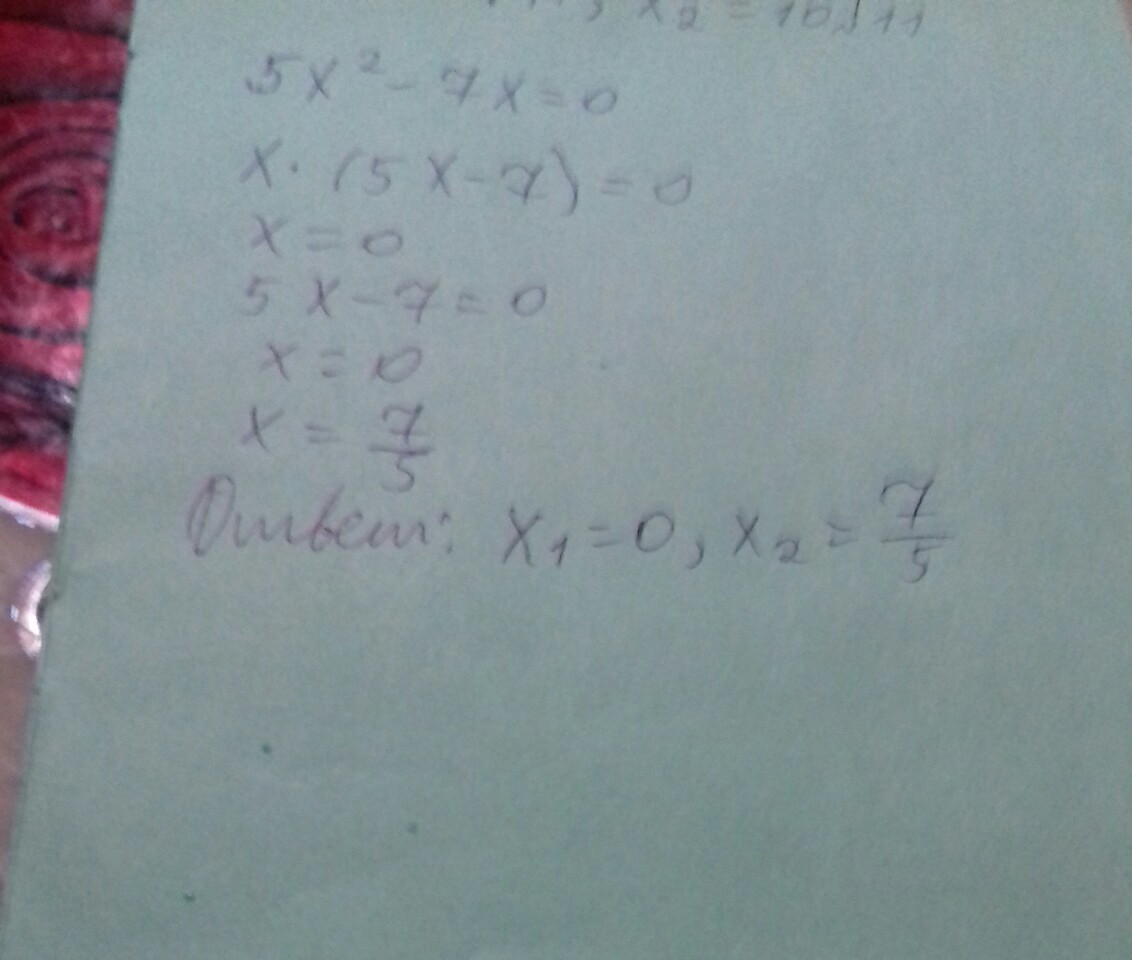 x₂ = 16√11
5x² - 7x = 0
x · (5x - 7) = 0
x = 0
5x - 7 = 0
x = 0
x = 7/5
Ответ: x₁ = 0, x₂ = 7/5